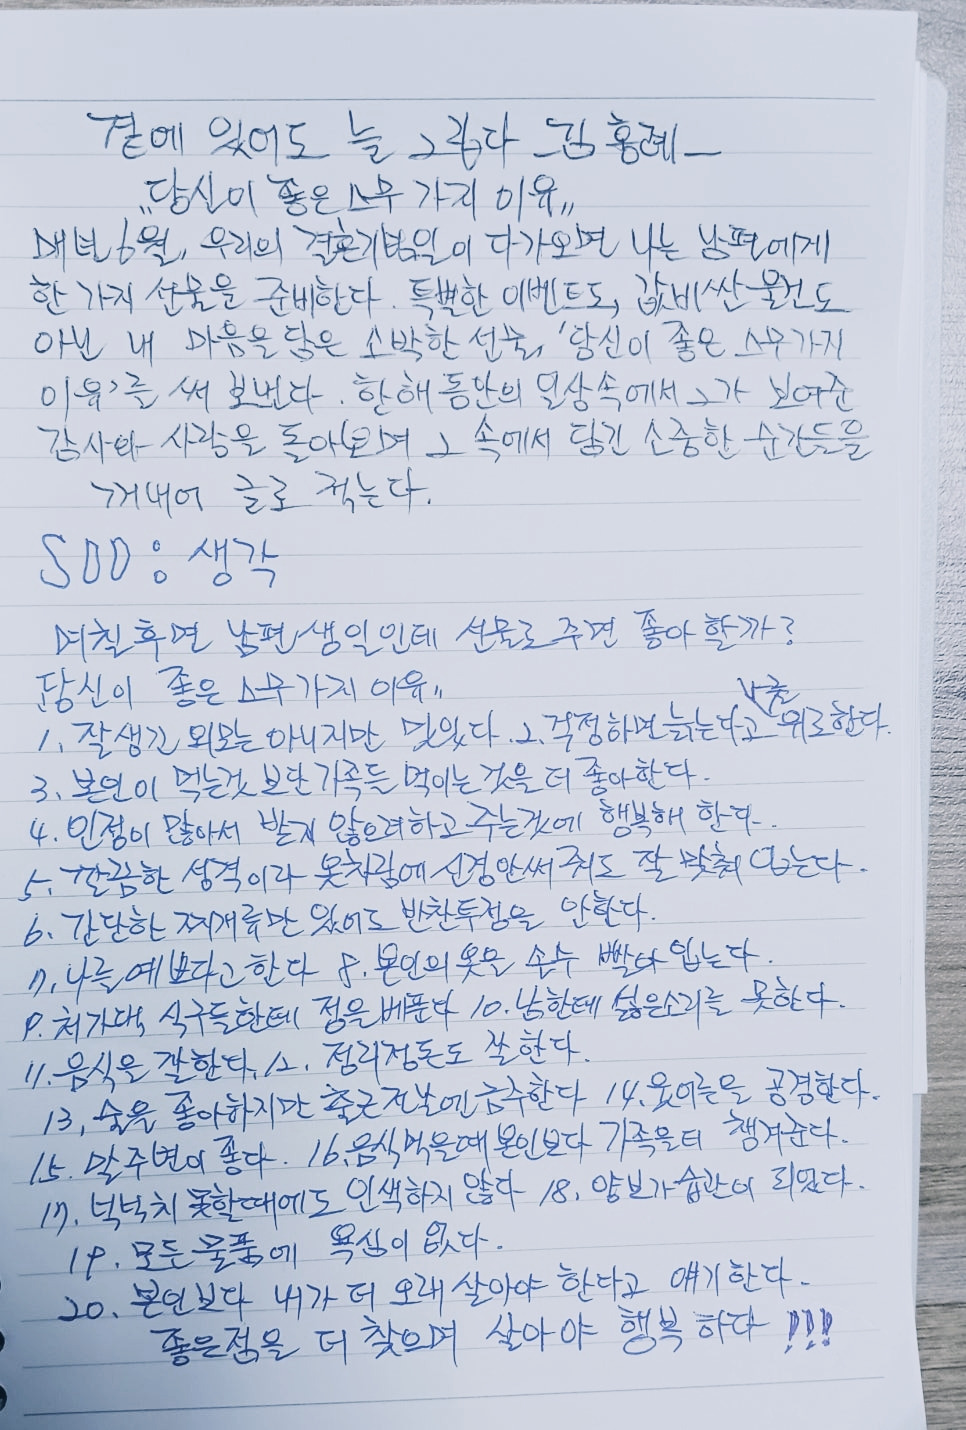 곁에 있어도 늘 그립다 _김홍례_
"당신이 좋은 스무 가지 이유"
매년 6월, 우리의 결혼기념일이 다가오면 나는 남편에게
한 가지 선물을 준비한다. 특별한 이벤트도, 값비싼 물건도
아닌 내 마음을 담은 소박한 선물, '당신이 좋은 스무가지
이유'를 써 보낸다. 한해 동안의 일상속에서 그가 보여준
감사와 사랑을 돌아보며 그 속에서 담긴 소중한 순간들을
꺼내어 글로 적는다.
SDD : 생각
며칠후면 남편 생일인데 선물로 주면 좋아 할까?
당신이 좋은 스무가지 이유"
1. 잘생긴 외모는 아니지만 멋있다. 2. 걱정하면 늙는다고 위로한다.
3. 본인이 먹는것 보단 가족들 먹이는 것을 더 좋아한다.
4. 인정이 많아서 받지 않으려하고 주는것에 행복해 한다.
5. 깔끔한 성격이라 옷차림에 신경안써 줘도 잘 맞춰 입는다.
6. 간단한 찌개류만 있어도 반찬투정을 안한다.
7. 나를 예쁘다고 한다 8. 본인의 옷을 손수 빨아 입는다.
9. 처가댁 식구들한테 정을 베푼다 10. 남한테 싫은소리를 못한다.
11. 음식을 잘한다. 12. 정리정돈도 잘한다.
13. 술을 좋아하지만 출근전날엔 금주한다 14. 웃어른을 공경한다.
15. 말주변이 좋다. 16. 음식먹을때 본인보다 가족을 더 챙겨준다.
17. 넉넉치 못할때에도 인색하지 않다 18. 양보가 습관이 되었다.
19. 모든 물품에 욕심이 없다.
20. 본인보다 내가 더 오래 살아야 한다고 얘기한다.
좋은점을 더 찾으며 살아야 행복하다 !!!